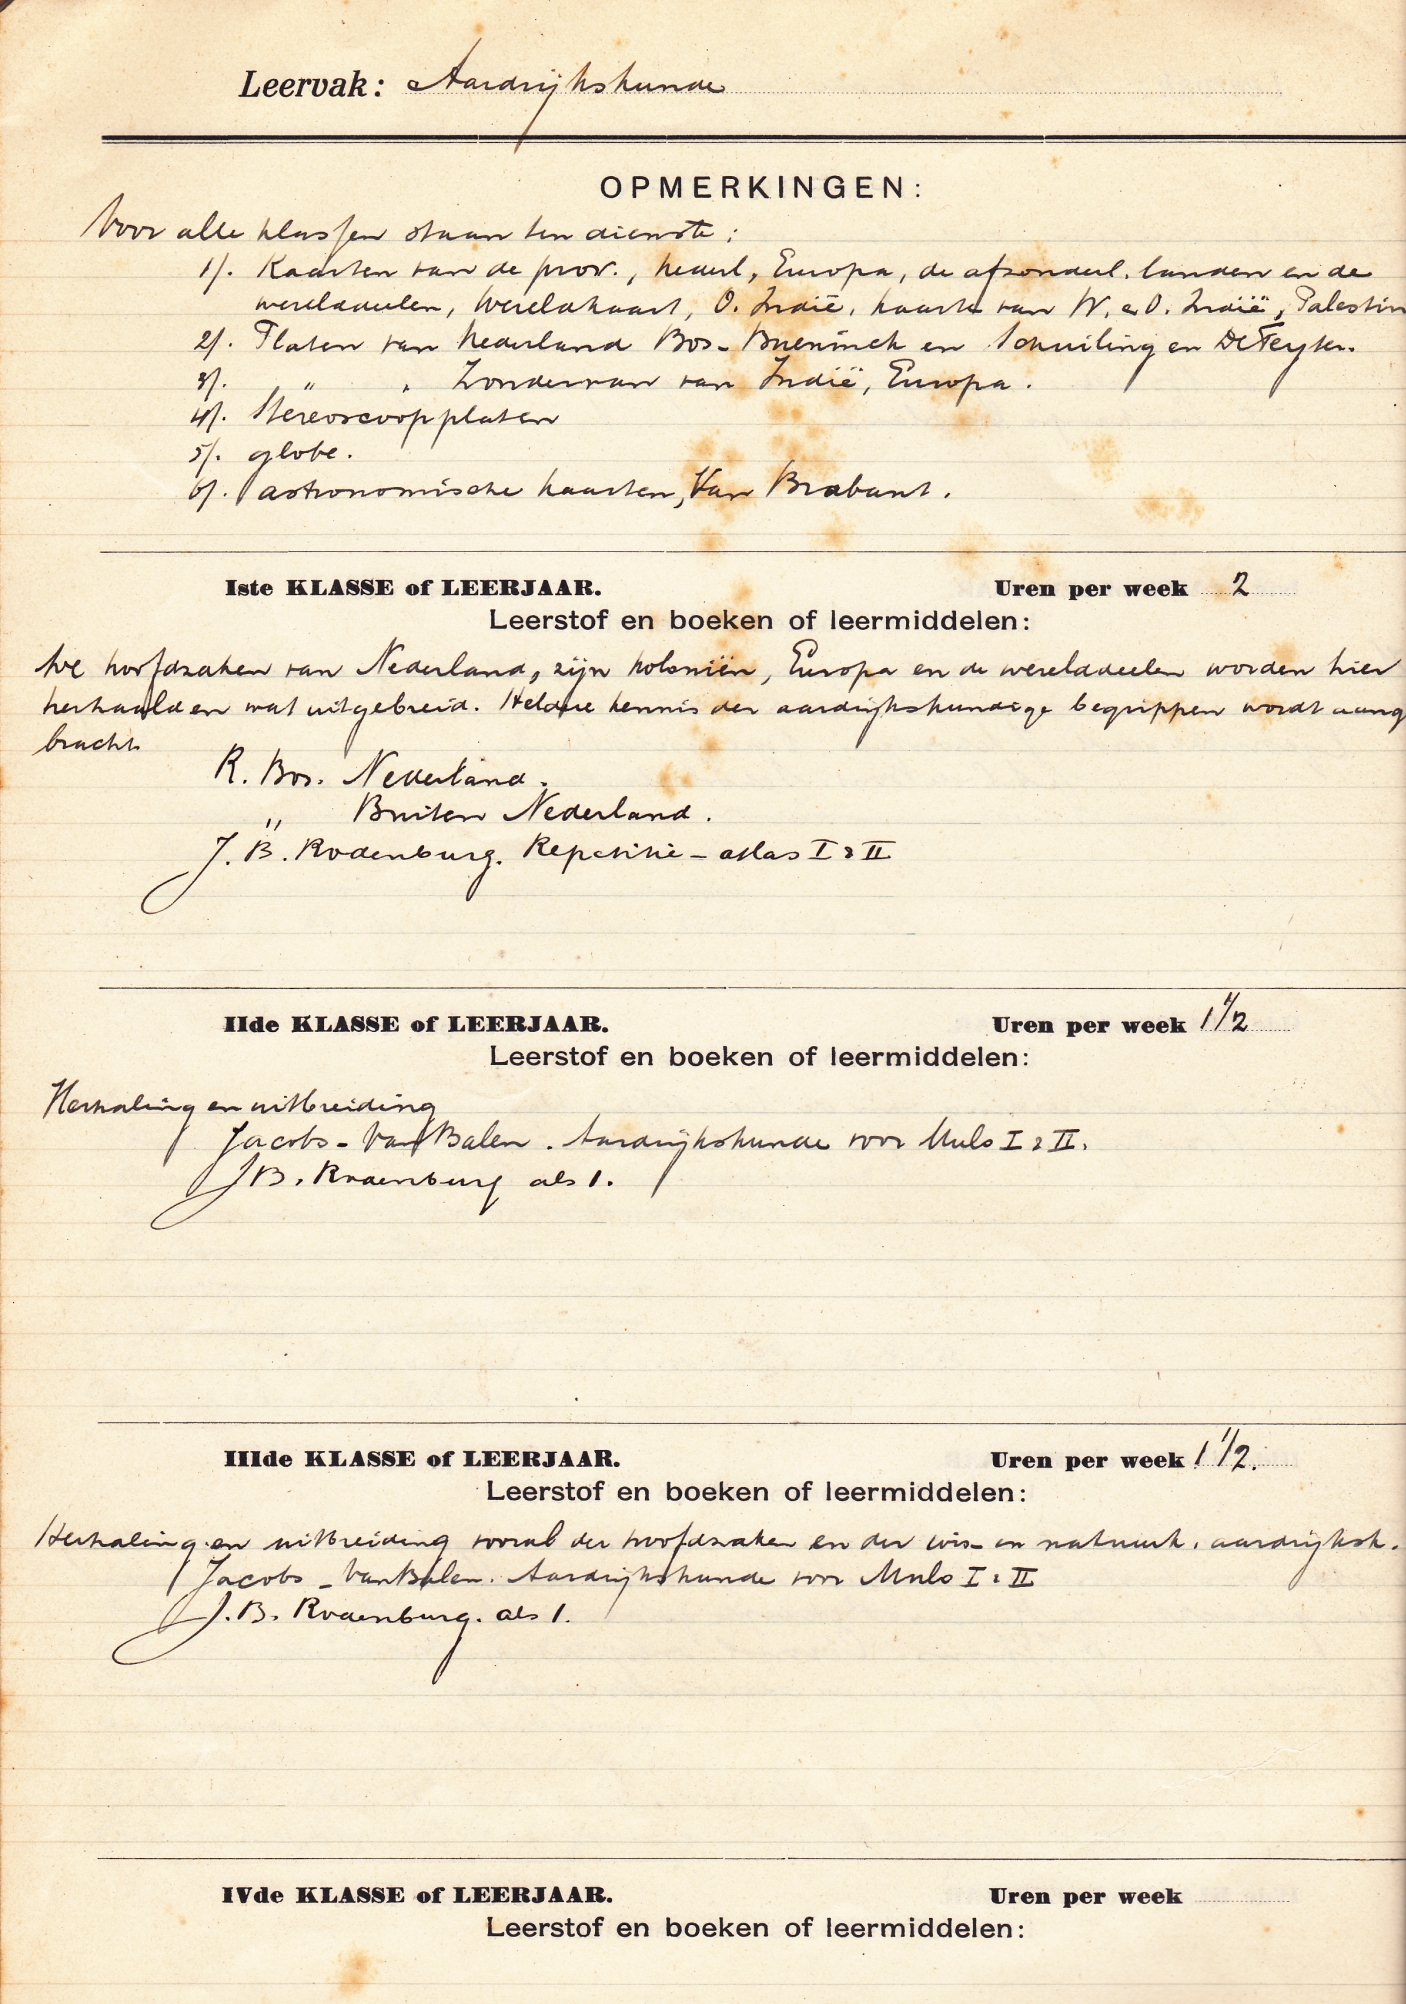 Leervak: Aardrijkskunde
OPMERKINGEN:
Voor alle klassen staan ten dienste:
1/. Kaarten van de prov., Nederl, Europa, de afzonderl. landen en de
werelddeelen, Wereldkaart, O. Indië, kaarten van W. en O. Indië, Palestin
2/. Platen van Nederland Bos- en Schuiling en De Feyter.
3/. " " Zondervan van Indië, Europa.
4/. Stereoscoopplaten
5/. globe.
6/. astronomische kaarten, Van Brabant.
Iste KLASSE of LEERJAAR. Uren per week 2
Leerstof en boeken of leermiddelen:
De hoofdzaken van Nederland, zijn koloniën, Europa en de werelddeelen worden hier
herhaald en wat uitgebreid. Heldere kennis der aardrijkskundige begrippen wordt aang
bracht.
R. Bos. Nederland.
" Buiten Nederland.
J. B. Rodenburg. Repetitie-atlas I & II
IIde KLASSE of LEERJAAR. Uren per week 1 1/2
Leerstof en boeken of leermiddelen:
Herhaling en uitbreiding
Jacobs - Van Balen. Aardrijkskunde voor Mulo I & II.
J B. Rodenburg als 1.
IIIde KLASSE of LEERJAAR. Uren per week 1 1/2.
Leerstof en boeken of leermiddelen:
Herhaling en uitbreiding vooral der hoofdzaken en der wis- en natuurk. aardrijksk.
Jacobs - Van Balen. Aardrijkskunde voor Mulo I & II
J. B. Rodenburg. als 1.
IVde KLASSE of LEERJAAR. Uren per week
Leerstof en boeken of leermiddelen: